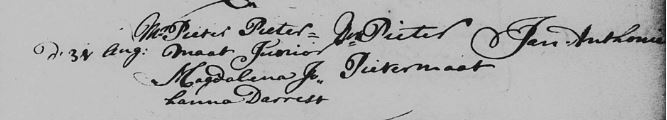 Mr Pieter Pieter= Mr Pieter Jan Anthonie
d: 31 Aug: maat Junior Pietermaat
Magdalena Jo=
hanna Darrest